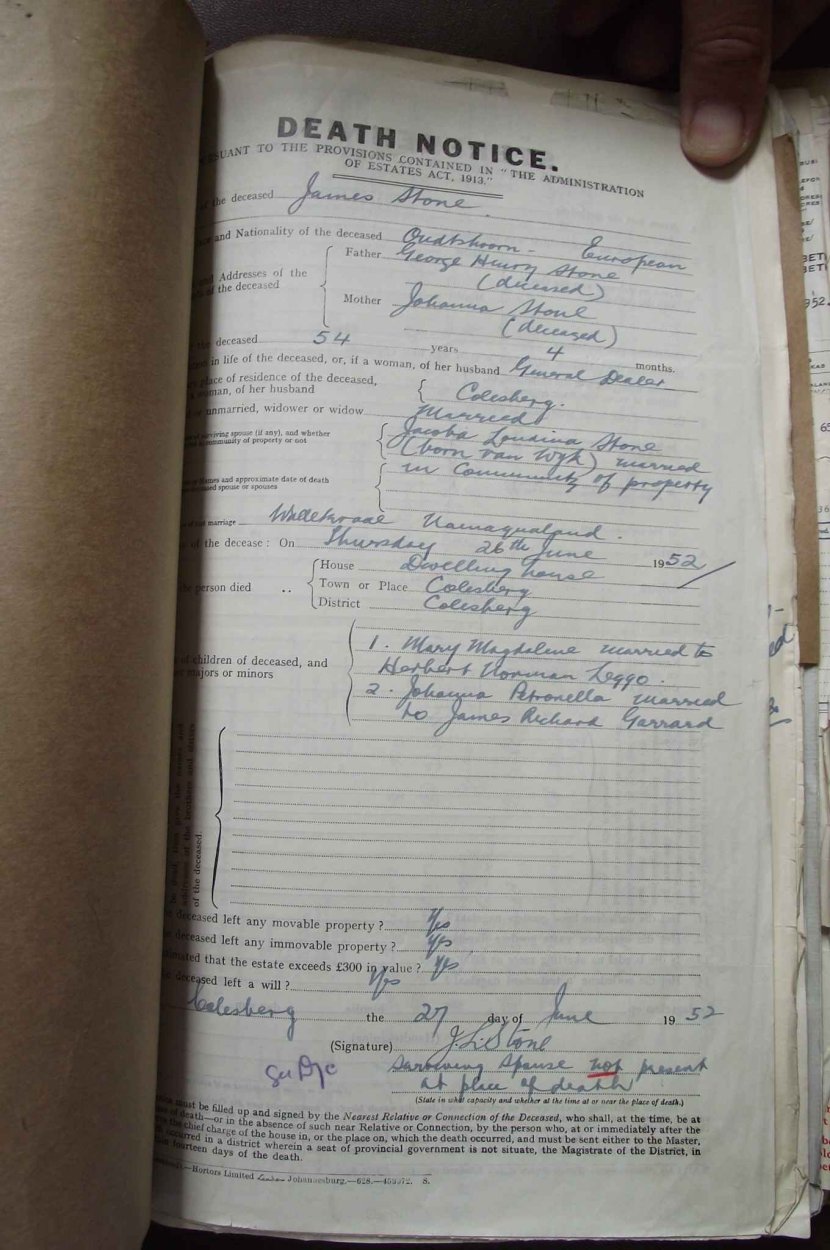 DEATH NOTICE.
SUANT TO THE PROVISIONS CONTAINED IN "THE ADMINISTRATION
OF ESTATES ACT, 1913."
of the deceased James Stone
and Nationality of the deceased Oudtshoorn - European
Father George Henry Stone
(deceased)
and Addresses of the
of the deceased
Mother Johanna Stone
(deceased)
the deceased 54 years 4 months.
in life of the deceased, or, if a woman, of her husband General Dealer
place of residence of the deceased,
woman, of her husband Colesberg.
unmarried, widower or widow Married
surviving spouse (if any), and whether
community of property or not
Jacoba Louaina Stone
(born van Wyk) married
in Community of property
Names and approximate date of death
spouse or spouses
marriage Namaqualand.
of the decease: On Thursday 26th June 1952
House Dwelling house
the person died .. Town or Place Colesberg
District Colesberg
of children of deceased, and
majors or minors
1. Mary Magdalene married to
Herbert Norman Leggo.
2. Johanna Petronella married
to James Richard Garrard
be dead, then give the names and
addresses of the brothers and sisters
of the deceased
deceased left any movable property? Yes
deceased left any immovable property? Yes
estimated that the estate exceeds £300 in value? Yes
deceased left a will? Yes
Colesberg the 27 day of June 1952
(Signature) J. L. Stone
Surviving Spouse not present
at place of death
(State in what capacity and whether at the time at or near the place of death.)
must be filled up and signed by the Nearest Relative or Connection of the Deceased, who shall, at the time, be at
of death—or in the absence of such near Relative or Connection, by the person who, at or immediately after the
the chief charge of the house in, or the place on, which the death occurred, and must be sent either to the Master,
occurred in a district wherein a seat of provincial government is not situate, the Magistrate of the District, in
fourteen days of the death.
Hortors Limited Johannesburg.—628.— S.